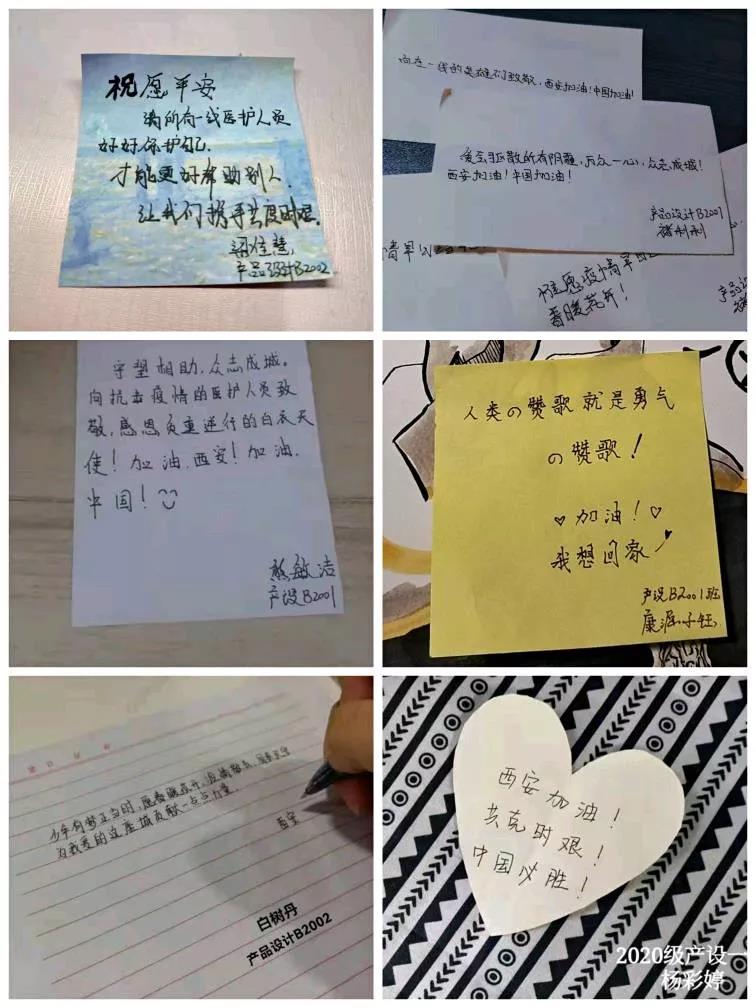 祝愿平安
满所有一线医护人员
好好保护自己
才能更好帮助别人.
让我们携手共度时艰.
梁佳慧
产品设计B2002
向在一线的英雄们致敬,西安加油!中国加油!
爱会驱散所有阴霾,万众一心,众志成城!
西安加油!中国加油!
产品设计B2001
褚利利
情早
祝愿疫情早
春暖花开!
产品设
守望相助,众志成城。
向抗击疫情的医护人员致
敬,感恩负重逆行的白衣天
使!加油,西安!加油,
中国!
熊敏洁
产设B2001
人类の赞歌就是勇气
の赞歌!
♡加油!♡
我想回家
产设B2001班
康涵子钰
少年有梦正当时,愿春暖花开,疫情散去,
为我爱的这座城贡献一点点力量.
白树丹
产品设计B2002
西安加油!
共克时艰!
中国必胜!
2020级产设一
杨彩婷